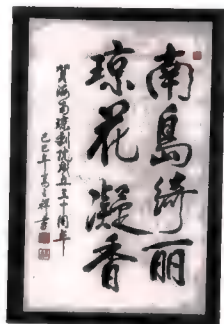 南島綺丽
琼花凝香
賀海南琼劇院成立三十周年
己巳年 祥書